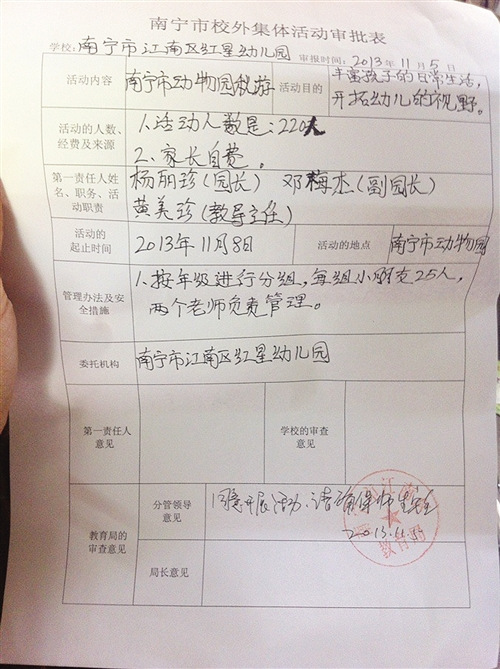 南宁市校外集体活动审批表
学校：南宁市江南区红星幼儿园 审报时间：2013年11月5日
活动内容 南宁市动物园秋游 活动目的 丰富孩子的日常生活，
开拓幼儿的视野。
活动的人数、
经费及来源
1、活动人数是：220人
2、家长自费。
第一责任人姓
名、职务、活
动职责
杨丽珍（园长） 邓梅杰（副园长）
黄美珍（教导主任）
活动的
起止时间
2013年11月8日 活动的地点 南宁市动物园
管理办法及安
全措施
1、按年级进行分组，每组小朋友25人，
两个老师负责管理。
委托机构 南宁市江南区红星幼儿园
第一责任人
意见
学校的审查
意见
教育局的
审查意见
分管领导
意见
同意开展活动、请确保师生安全
2013.11.5
教育局
局长意见